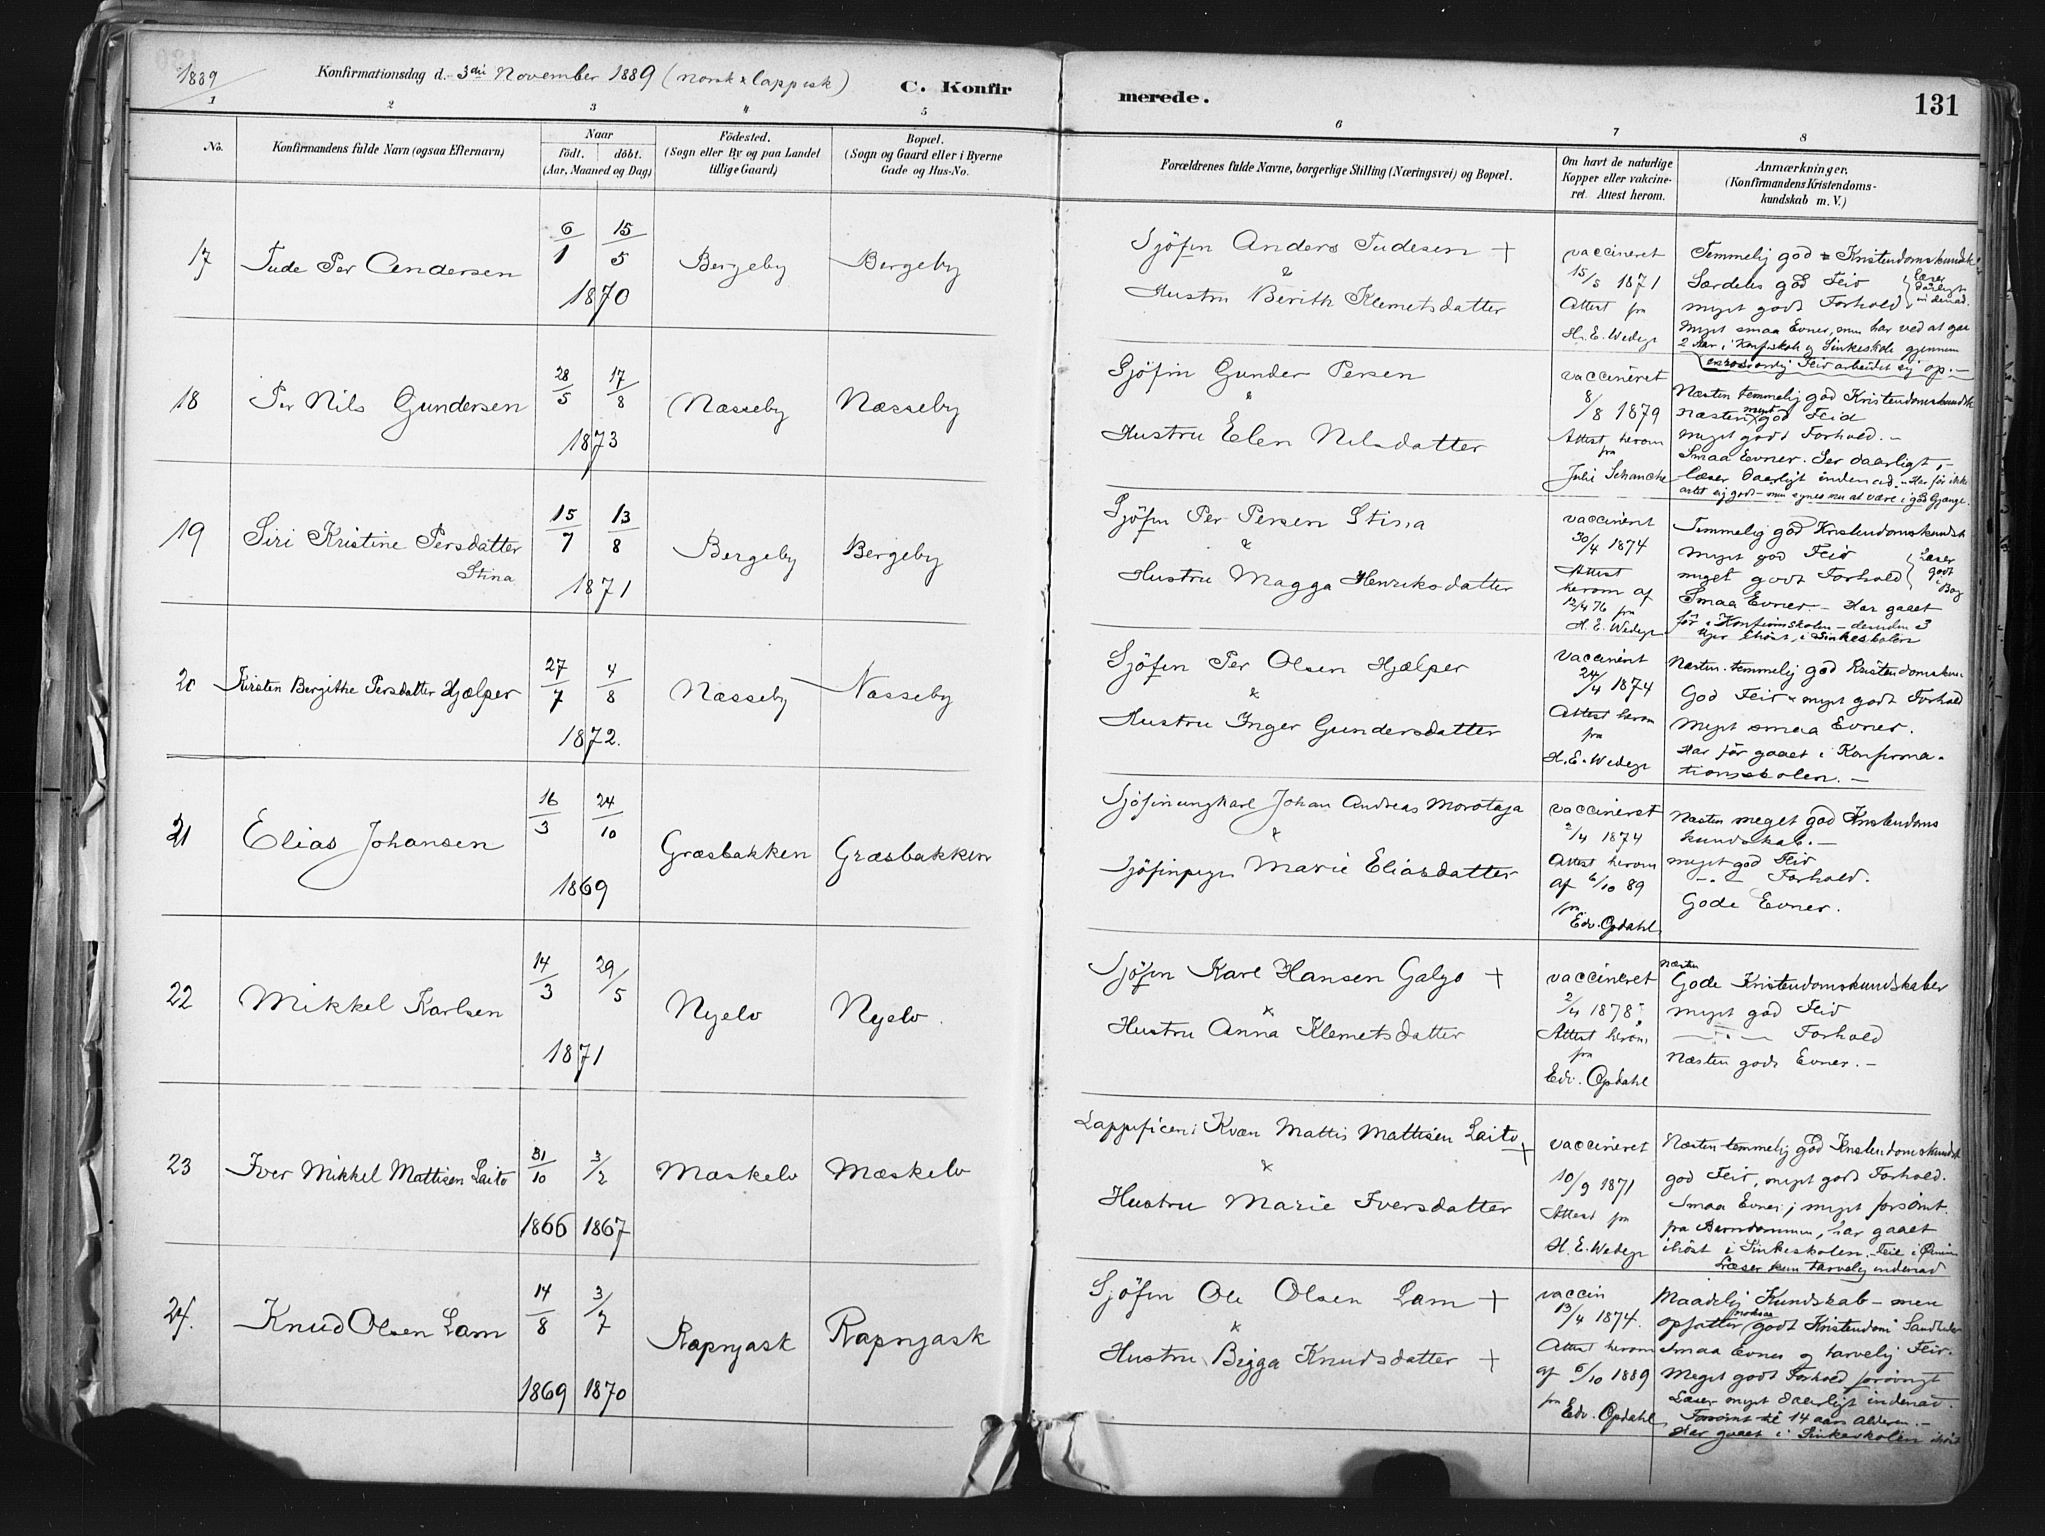 1889
Konfirmationsdag d. 3die November 1889 (norsk & lappisk)
C. Konfirmerede.
131
1 2 3 4 5 6 7 8
No.
Konfirmandens fulde Navn (ogsaa Efternavn)
Naar
födt. döbt.
(Aar, Maaned og Dag)
Födested.
(Sogn eller By og paa Landet
tillige Gaard)
Bopæl.
(Sogn og Gaard eller i Byerne
Gade og Hus-No.
Forældrenes fulde Navne, borgerlige Stilling (Næringsvei) og Bopæl.
Om havt de naturlige
Kopper eller vakcine-
ret. Attest herom.
Anmærkninger.
(Konfirmandens Kristendoms-
kundskab m. V.)
17
Tude Per Andersen
6/1 15/5
1870
Bergeby
Bergeby
Sjöfin Anders Tudesen +
&
Hustru Berith Klemetsdatter
vaccineret
15/5 1871
Attest fra
H. E. Wedege
Temmelig god Kristendomskundsk
Særdeles god Flid
meget godt Forhold
Læser
daarligt
indenad.
Meget smaa Evner, men har ved at gaa
2 Aar i Konf.skole og Sinkeskole gjennem
overordentlig Flid arbeidet sig op. –
18
Per Nils Gundersen
28/5 17/8
1873
Næsseby
Næsseby
Sjöfin Gunder Persen
&
Hustru Elen Nilsdatter
vaccineret
8/8 1879
Attest herom
fra
Julie Schancke
Næsten temmelig god Kristendomskundsk
næsten meget god Flid
meget godt Forhold. –
Smaa Evner. Ser daarligt, –
læser daarligt indenad. – Har før ikke
artet sig godt – men synes nu at være i god Gjænge.
19
Siri Kristine Persdatter
Stina
15/7 13/8
1871
Bergeby
Bergeby
Sjöfin Per Persen Stina
&
Hustru Magga Henriksdatter
vaccineret
30/4 1874
Attest
herom af
12/4 76 fra
H. E. Wedege
Temmelig god Kristendomskundsk
meget god Flid
meget godt Forhold
Læser
godt
i
Bog
Smaa Evner. – Har gaaet
før i Konfirmskolen – desuden 3
Uger ihöst i Sinkeskolen
20
Kirsten Bergithe Persdatter Hjælper
27/7 4/8
1872.
Næsseby
Næsseby
Sjöfin Per Olsen Hjælper
&
Hustru Inger Gundersdatter
vaccineret
24/4 1874
Attest herom
fra
H. E. Wedege
Næsten temmelig god Kristendomskun
God Flid – meget godt Forhold
Meget smaa Evner.
Har før gaaet i Konfirma-
tionsskolen. –
21
Elias Johansen
16/3 24/10
1869
Græsbakken
Græsbakken
Sjöfinungkarl Johan Andreas Morotaja
&
Sjöfinpige Marie Eliasdatter
vaccineret
2/4 1874
Attest herom
af 6/10 89
fra
Edv. Opdahl
Næsten meget god Kristendoms
kundskab. –
meget god Flid
– " – Forhold.
Gode Evner.
22
Mikkel Karlsen
14/3 29/5
1871
Nyelv
Nyelv.
Sjöfin Karl Hansen Galgo +
&
Hustru Anna Klemetsdatter
vaccineret
2/4 1878
Attest herom
fra
Edv. Opdahl
Næsten
Gode Kristendomskundskaber
meget god Flid
– " – Forhold
Næsten gode Evner. –
23
Iver Mikkel Mattisen Laito
31/10 3/2
1866 1867
Mæskelv
Mæskelv
Lappificeri Kvæn Mattis Mattisen Laito +
&
Hustru Marie Iversdatter
vaccineret
10/9 1871
Attest fra
H. E. Wedege
Næsten temmelig god Kristendomskundsk
god Flid, meget godt Forhold.
Smaa Evner; meget forsömt
fra Barndommen, har gaaet
ihöst i Sinkeskolen.
Læser kun tarvelig indenad
24.
Knud Olsen Lam
14/8 3/7
1869 1870
Rapnjask
Rapnjask
Sjöfin Ole Olsen Lam +
&
Hustru Bigga Knudsdatter +
vaccin
13/4 1874.
Attest herom
af 6/10 1889
fra
Edv. Opdahl
Maadelig Kundskab – men
opfatter godt Kristendom Sandheder
Smaa Evner og tarvelig Flid.
Meget godt Forhold forövrigt
Læser meget daarligt indenad.
Forsömt til 14 aars alderen. –
Har gaaet i Sinkeskolen ihöst